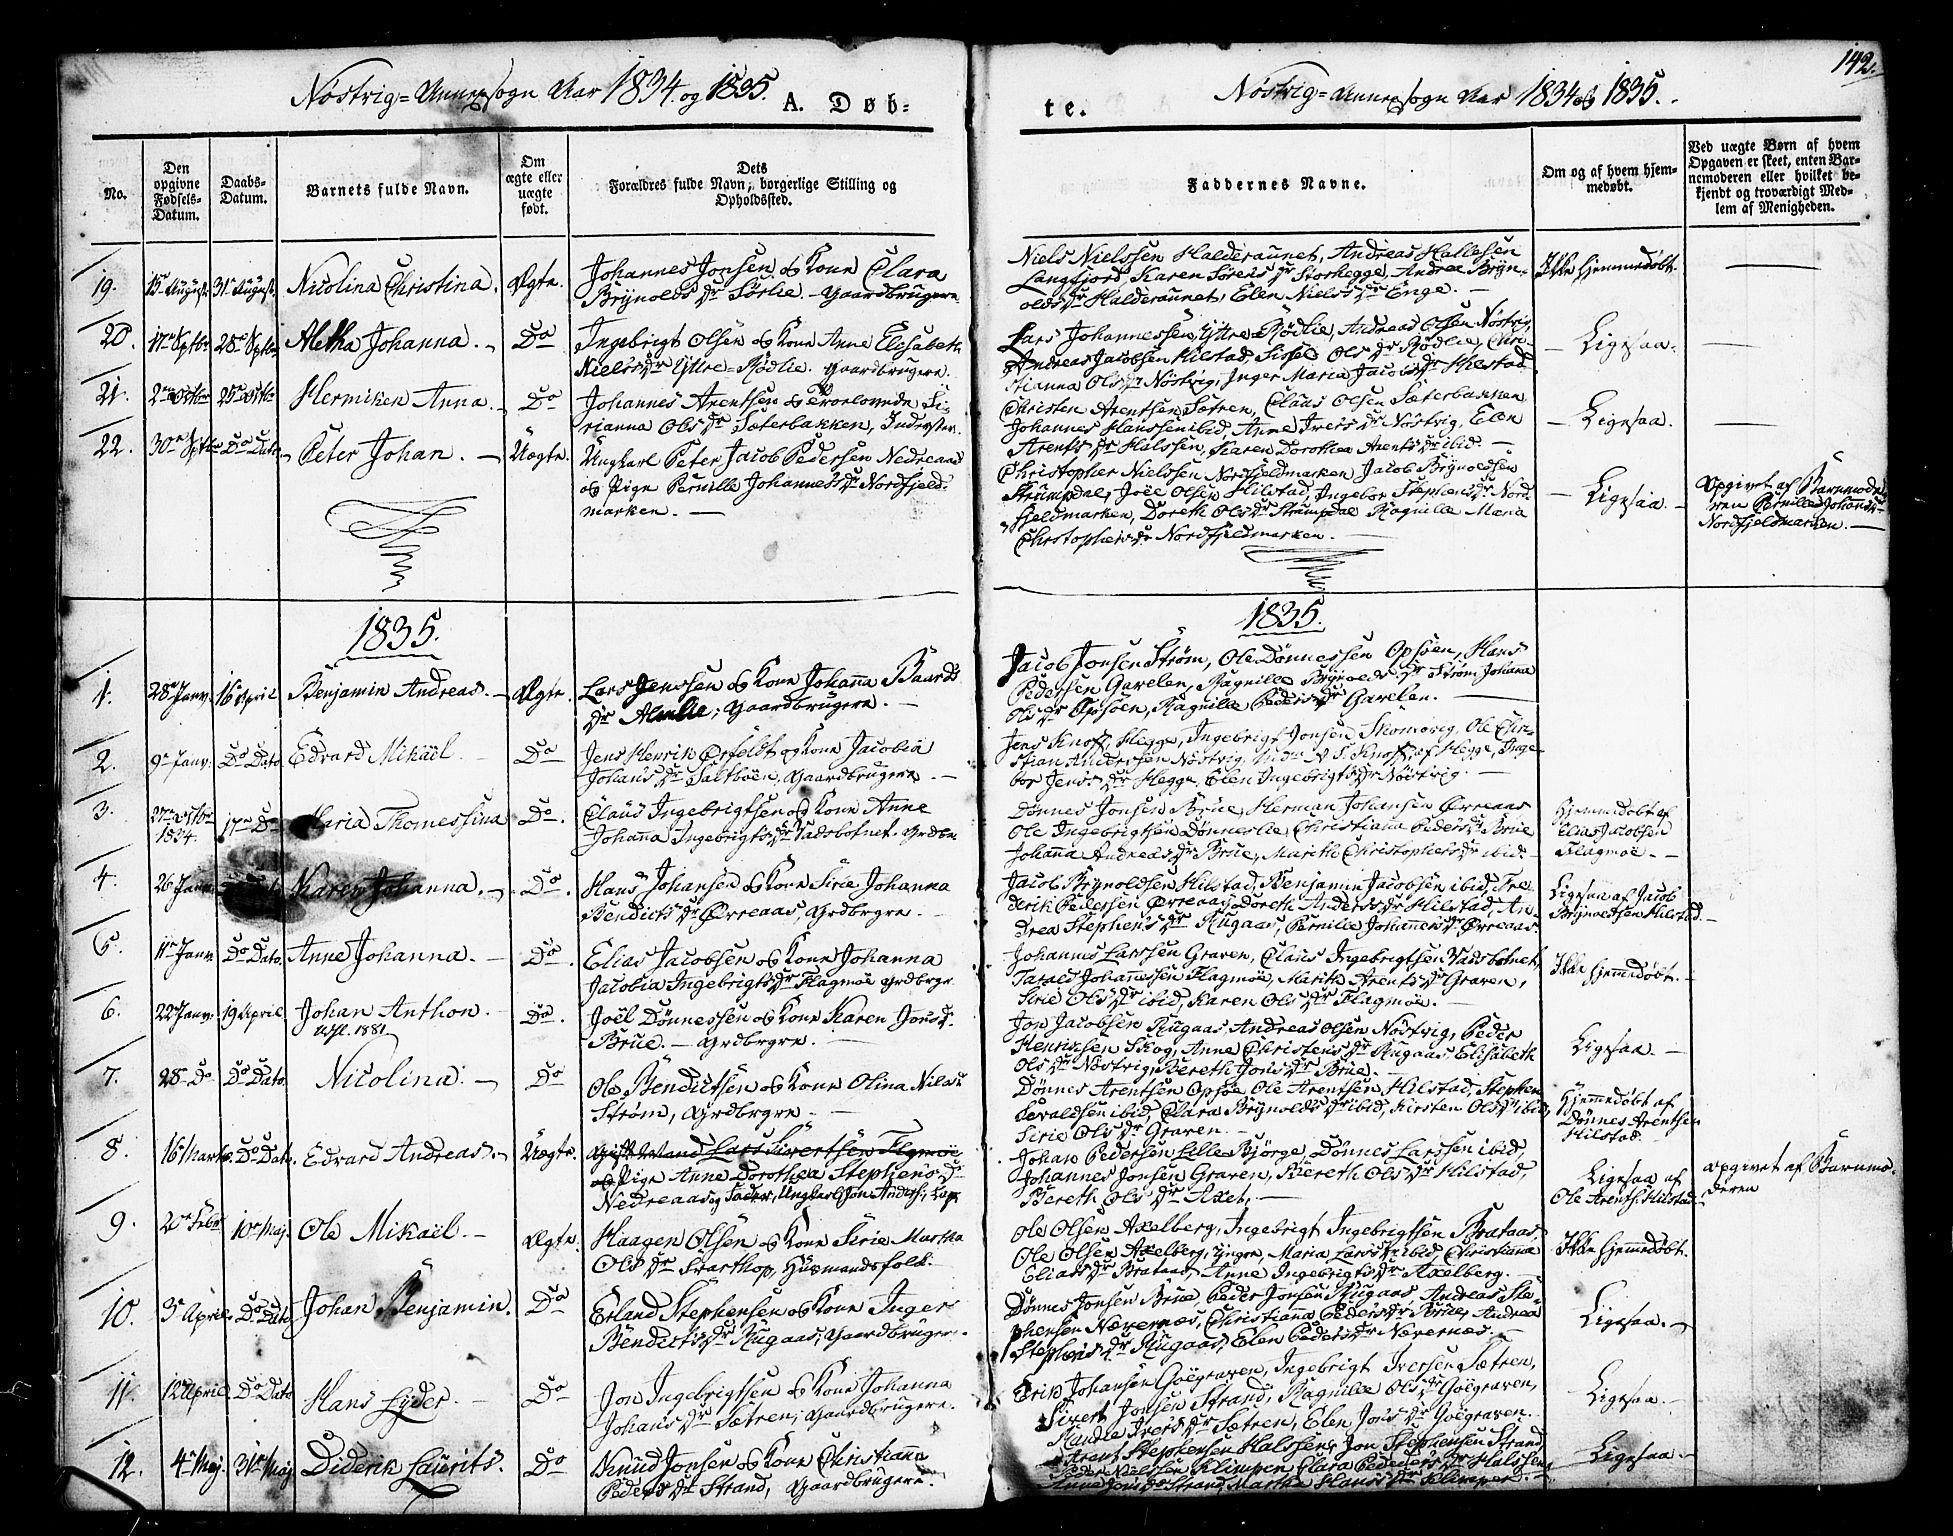 142.
Nöstvig=Annexsogn Aar 1834 og 1835. A. Døb-
te. Nöstvig=Annexsogn Aar 1834 og 1835.
No.
Den opgivne Fødsels-Datum.
Daabs-Datum.
Barnets fulde Navn.
Om ægte eller uægte født.
Dets Forældres fulde Navn, borgerlige Stilling og Opholdssted.
Faddernes Navne.
Om og af hvem hjemmedøbt.
Ved uægte Børn af hvem Opgaven er skeet, enten Barnemoderen eller hvilket bekjendt og troværdigt Medlem af Menigheden.
19. 15de August 31te August. Nicolina Christina. Ægte.
Johannes Jonsen og Kone Clara
Brynolds Dr Sörlie – Gaardbrugere
Niels Nielssen Halderaunet, Andreas Hallesen
Langfjord, Karen Sörens Dr Storhegge, Andrea Bryn-
olds Dr Halderaunet, Elen Niels Dr Enge. –
Ikke hjemmedöbt.
20. 17de Sptbr 28de Sptbr. Metha Johanna. Do
Ingebrigt Olsen og Kone Anne Elisabeth
Niels Dr Yttre=Rödlie. Gaardbrugere.
Lars Johannessen Yttre Rödlie, Andreas Olsen Nöstvig,
Andreas Jacobsen Hilstad, Sissel Ols Dr Rödlie, Chri-
stianna Ols Dr Nöstvig, Inger Maria Jacobs Dr Hilstad
Ligesaa.
21. 2den Octbr 25de Octbr Hermiken Anna. Do
Johannes Arentsen og Trolovede Si-
rianna Ols Dr Sæterbakken, Inderster.
Christen Arentsen Sætren, Claus Olsen Sæterbakken
Johannes Hanssen ibid, Anne Ivers Dr Nöstvig, Elen
Arents Dr Halssen, Karen Dorothea Arents Dr ibid –
Ligesaa.
22. 30te Sptbr Do Dato Peter Johan. Uægte.
Ungkarl Peter Jacob Pedersen Nedreaas
og Pige Pernille Johannes Dr Nordfjeld-
marken. –
Christopher Nielssen Nordfjeldmarken, Jacob Brynoldsen
Strumpdal, Joel Olsen Hilstad, Ingebor Stephens Dr Nord
fjeldmarken, Doreth Ols Dr Strumpdal, Ragnille Maria
Christophers Dr Nordfjeldmarken. –
Ligesaa.
Opgivet af Barnemode-
ren Pernille Johannes Dr
Nordfjeldmarken. –
1835.
1835.
1. 28de Janv. 16 April Benjamin Andreas. Ægte.
Lars Jenssen og Kone Johanna Baards
Dr Almlie, Gaardbrugere. –
Jacob Jonsen Ström, Ole Dönnessen Opsöen, Hans
Pedersen Gavelen, Ragnille Brynolds Dr Ström, Johana
Ols Dr Opsöen, Ragnille Peders Dr Gavelen.
2. 9de Janv. Do Dato Edvard Mikäel. Do
Jens Henrik Örsfeldt og Kone Jacobia
Johans Dr Saltböen, Gaardbrugere. –
Jens Knoff, Hegge, Ingebrigt Jonsen Thomavig, Ole Chri-
stian Anderssen Nöstvig, N. S. Knoff af Hegge, Inge-
bor Jens Dr Hegge, Elen Ingebrigts Dr Nöstvig. –
3. 27de Octbr 1834. 17de Do Maria Thomessina Do.
Claus Ingebrigtsen og Kone Anne
Johanna Ingebrigts Dr Vadsbotnet. Grdbr.
Dönnes Jonsen Brue, Herman Johansen Örreaas
Ole Ingebrigtsen Dönneslie, Christiana Peders Dr Brue
Johanna Andreas Dr Brue, Mareth Christophers Dr ibid. –
Hjemmedöbt af
Elias Jacobsen
Flagmoe. –
4. 26 Janv. Karen Johanna. Do.
Hans Johansen og Kone Sirie Johanna
Bendicts Dr Örreaas, Grdbrgre. –
Jacob Brynoldsen Hilstad, Benjamin Jacobsen ibid, Fre-
derik Pedersen Örreaas, Doreth Anders Dr Hilstad, An-
drea Stephens Dr Rugaas, Pernille Johannes Dr Örreaas
Ligesaa af Jacob
Brynoldsen Hilstad.
5. 11te Janv. Do Dato. Anne Johanna. Do.
Elias Jacobsen og Kone Johanna
Jacobia Ingebrigts Dr Flagmoe Grdbrgr
Johannes Larssen Graven, Claus Ingebrigtsen Vadsbotnet,
Tarald Johannessen Flagmoe, Marith Arents Dr Graven,
Sirie Ols Dr ibid, Karen Ols Dr Flagmoe. –
Ikke hjemmedöbt.
6. 22 Janv. 19 April. Johan Anthon. Do.
1881
Joël Dönnessen og Kone Karen Jons Dr
Brue. – Grdbrgre. –
Jon Jacobsen Rugaas, Andreas Olsen Nöstvig, Peder
Henrichsen Skog, Anne Christens Dr Rugaas, Elisabeth
Ols Dr Nöstvig, Bereth Jons Dr Brue. –
Ligesaa. –
7. 28 Do Do Dato. Nicolina. – Do
Ole Bendictsen og Kone Olina Nils Dr
Ström, Grdbrgre. –
Dönnes Arentsen Opsöe, Ole Arentsen Hilstad, Stephen
Sevaldsen ibid, Clara Brynolds Dr ibid, Kirsten Ols Dr ibid,
Sirie Ols Dr Graven. –
Hjemmedöbt af
Dönnes Arentsen
Hilstad.
8. 16 Marts. Do Dato. Edvard Andreas. – Uægte.
Gift Mand Lars Sivertsen Flagmoe
og Pige Anne Dorothea Stephens Dr
Nedreaas,
Johan Pedersen Lille Björge, Dönnes Larssen ibid,
Johannes Jonsen Graven, Bereth Ols Dr Hilstad,
Bereth Ols Dr Axel. –
Ligesaa af
Ole Arents. Hilstad.
Opgivet af Barnemo-
deren
9. 20de Febr. 10de Maj. Ole Mikäel. – Ægte.
Haagen Olsen og Kone Sirie Martha
Ols Dr Svarthop, Huusmandsfolk.
Ole Olsen Axelberg, Ingebrigt Ingebrigtsen Brataas,
Ole Olsen Axelberg, Yngre, Maria Lars Dr ibid, Christiana
Elias Dr Brataas, Anne Ingebrigts Dr Axelberg.
Ikke hjemmedöbt.
10. 3de April. Do Dato Johan Benjamin. Do
Erland Stephensen og Kone Inger
Bendicts Dr Rugaas, Gaardbrugere.
Dönnes Jonsen Brue, Peder Jonsen Rugaas, Andreas Ste-
phensen Nævernæs, Christiana Peders Dr Brue, Andrea
Stephens Dr Rugaas, Elen Peders Dr Nævernæs. –
Ligesaa. –
11. 12te April. Do Dato Hans Lyder. – Do
Jon Ingebrigtsen og Kone Johanna
Johans Dr Sætren, Gaardbrugere.
Erik Johansen Goegraven, Ingebrigt Iversen Sætren,
Sivert Jonsen Strand, Ragnille Ols Dr Goegraven,
Ivers Dr Sætren, Elen Jons Dr Goegraven.
Ligesaa. –
12. 4de Maj 31te Maj Diderik Laurits. Do
Knud Jonsen og Kone Christiana
Peders Dr Strand, Gaardbrugere.
Arent Stephensen Halssen, Jon Stephensen Strand
Peder Nielssen Klimpen, Clara Peders Dr Halssen,
Anne Jons Dr Strand, Martha Hans Dr Klimpen.
Ligesaa. –